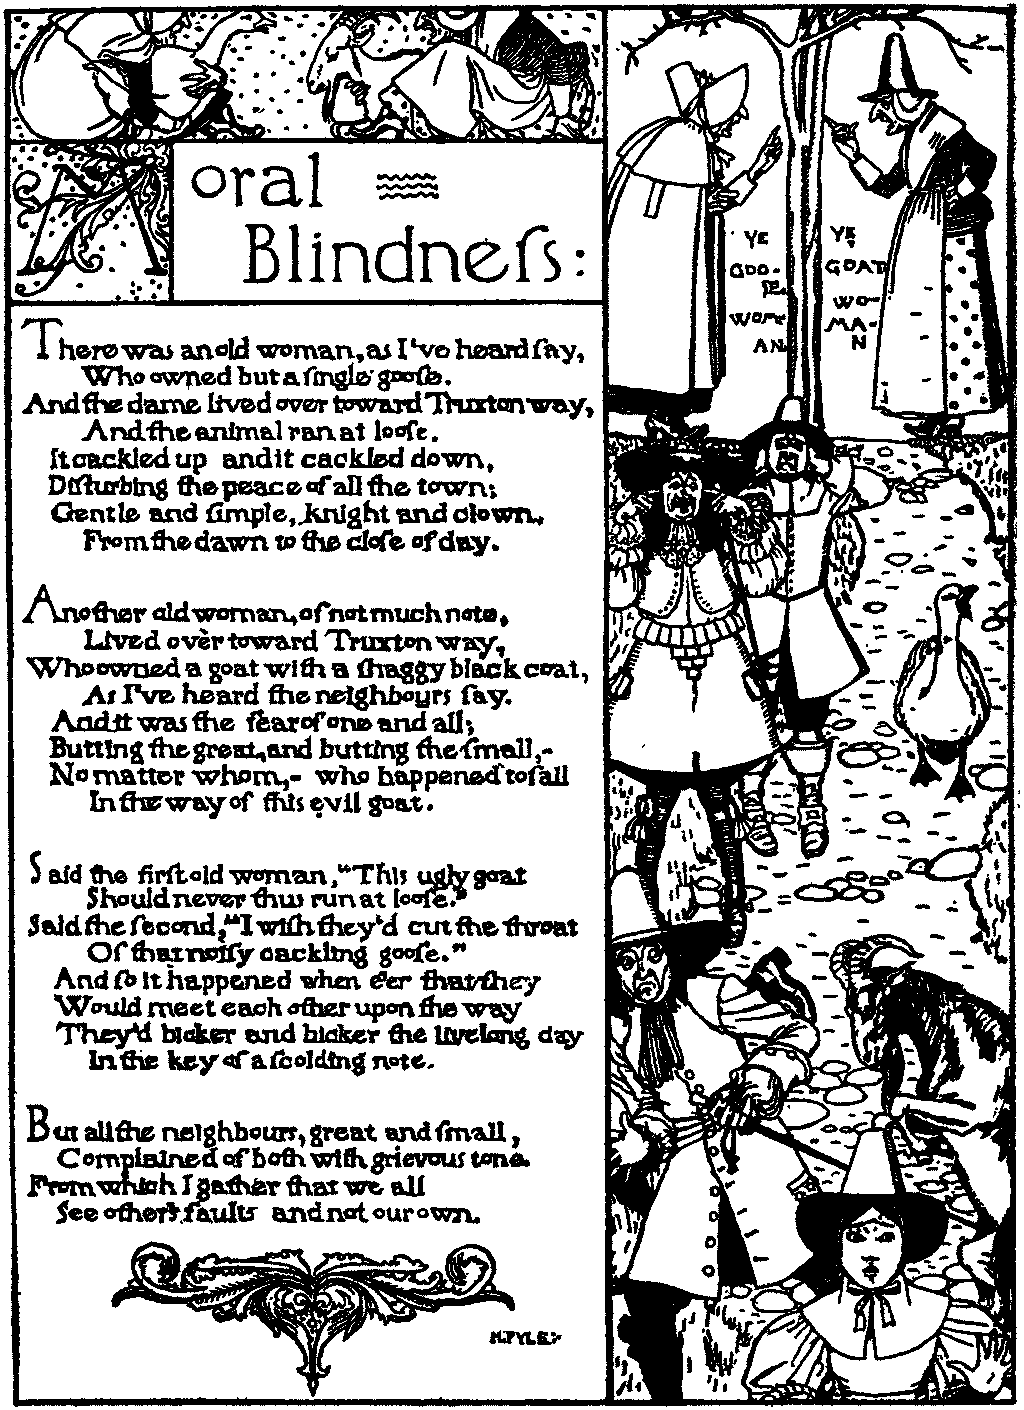 Moral
Blindneſs:
There was an old woman, as I've heard ſay,
Who owned but a ſingle gooſe.
And the dame lived over toward Truxton way,
And the animal ran at looſe.
It cackled up and it cackled down,
Diſturbing the peace of all the town;
Gentle and ſimple, knight and clown,
From the dawn to the cloſe of day.
Another old woman, of not much note,
Lived over toward Truxton way,
Who owned a goat with a ſhaggy black coat,
As I've heard the neighbours ſay.
And it was the fear of one and all;
Butting the great, and butting the ſmall,-
No matter whom,- who happened to fall
In the way of this evil goat.
Said the firſt old woman, "This ugly goat
Should never thus run at looſe."
Said the ſecond, "I wiſh they'd cut the throat
Of that noiſy cackling gooſe."
And ſo it happened when e'er that they
Would meet each other upon the way
They'd bicker and bicker the livelong day
In the key of a ſcolding note.
But all the neighbours, great and ſmall,
Complained of both with grievous tone.
From which I gather that we all
See others' faults and not our own.
H. PYLE
YE
GOO-
SE
WOM-
AN
YE
GOAT
WO-
MA-
N